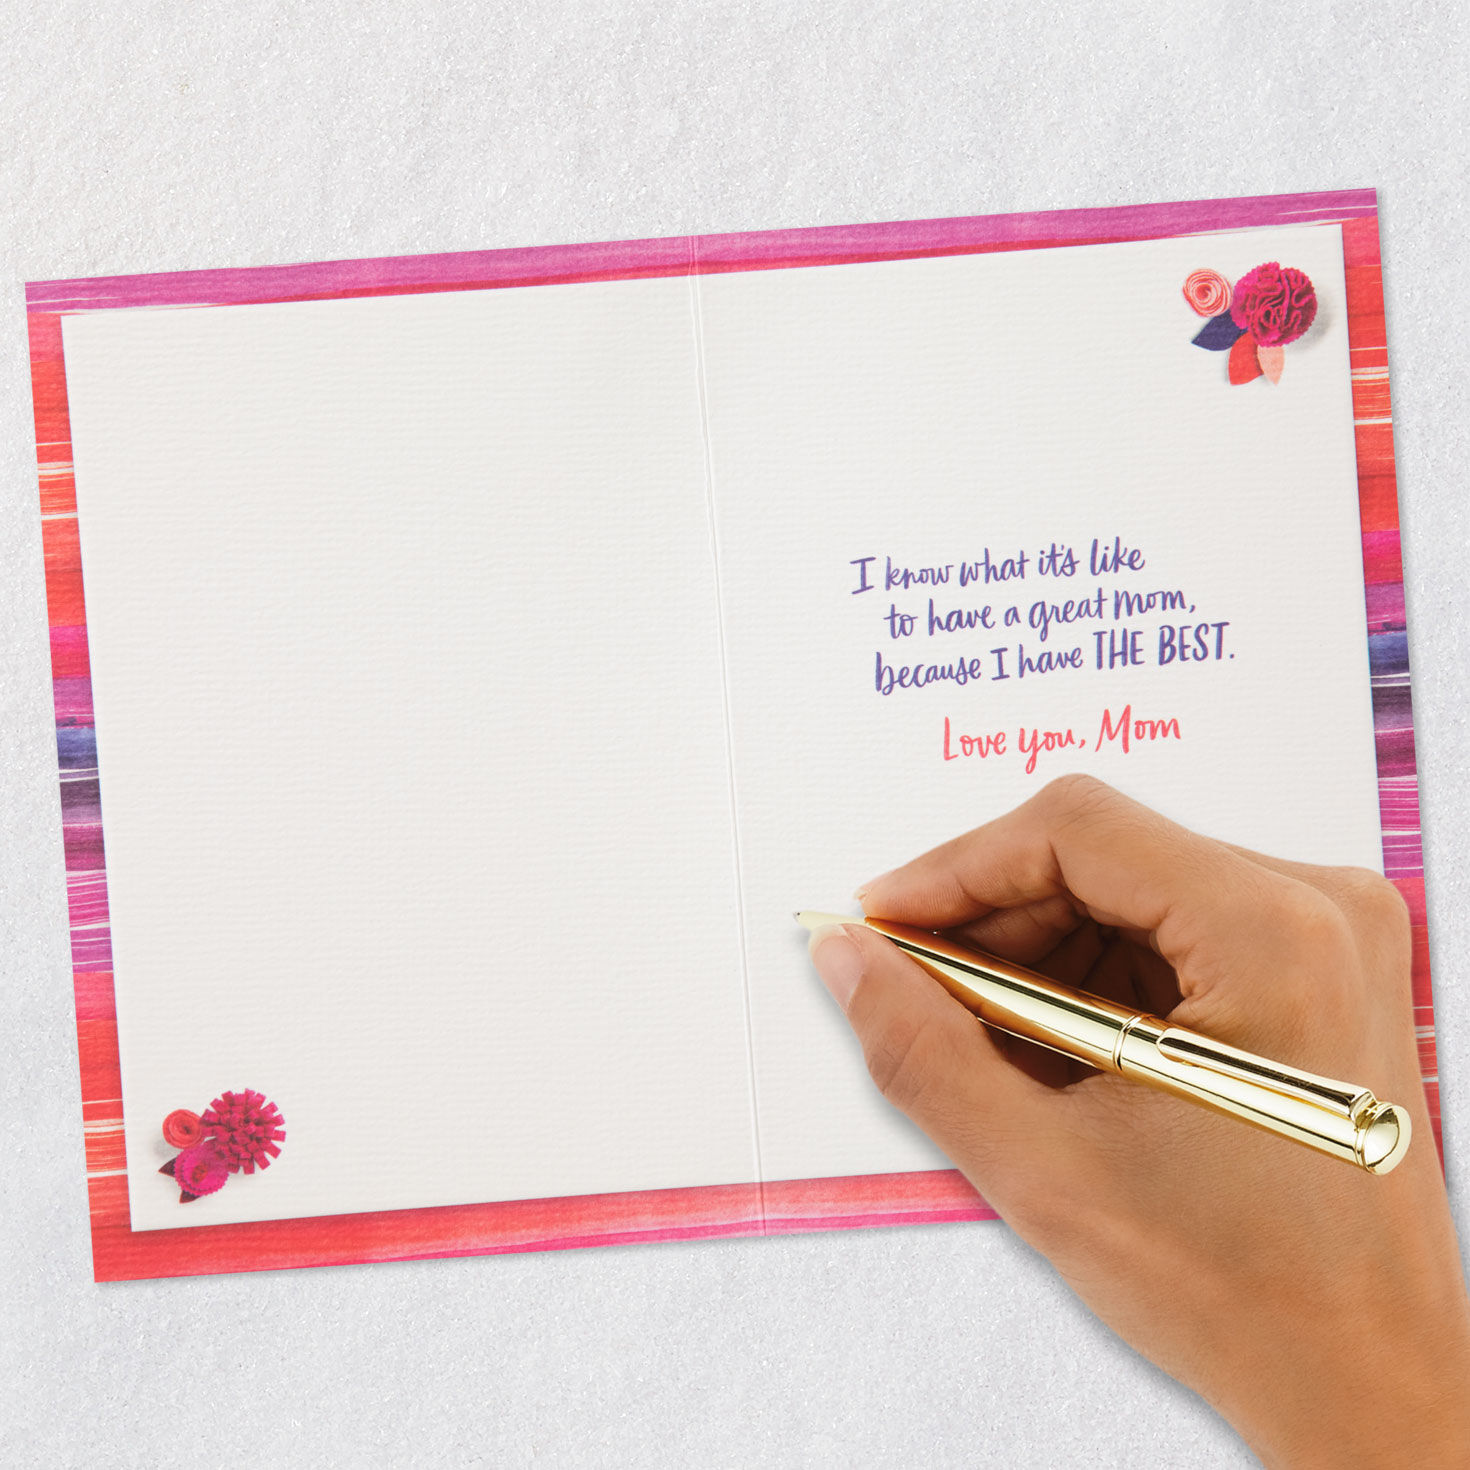 I know what it's like
to have a great mom,
because I have THE BEST.
Love you, Mom